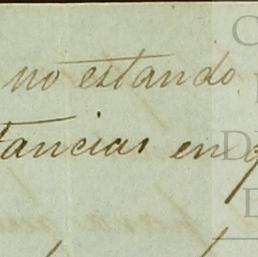 no estando
tancias en q